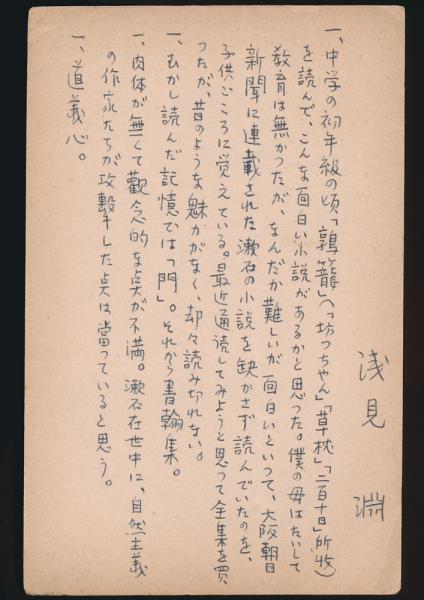 浅見 淵
一、中学の初年級の頃「鶉籠」へ「坊つちゃん」「草枕」「二百十日」所收)
を読んで、こんな面白い小説があるかと思つた。僕の母はたいして
教育は無かつたが、なんだか難しいが面白いといつて、大阪朝日
新聞に連載された漱石の小説を缺かさず読んでいたのを、
子供ごころに覚えている。最近通読してみようと思つて全集を買
つたが、昔のような魅力がなく、却々読み切れない。
一、むかし読んだ記憶では「門」。それから書翰集。
一、肉体が無くて觀念的な点が不満。漱石在世中に、自然主義
の作家たちが攻撃した点は當っていると思う。
一、道義心。